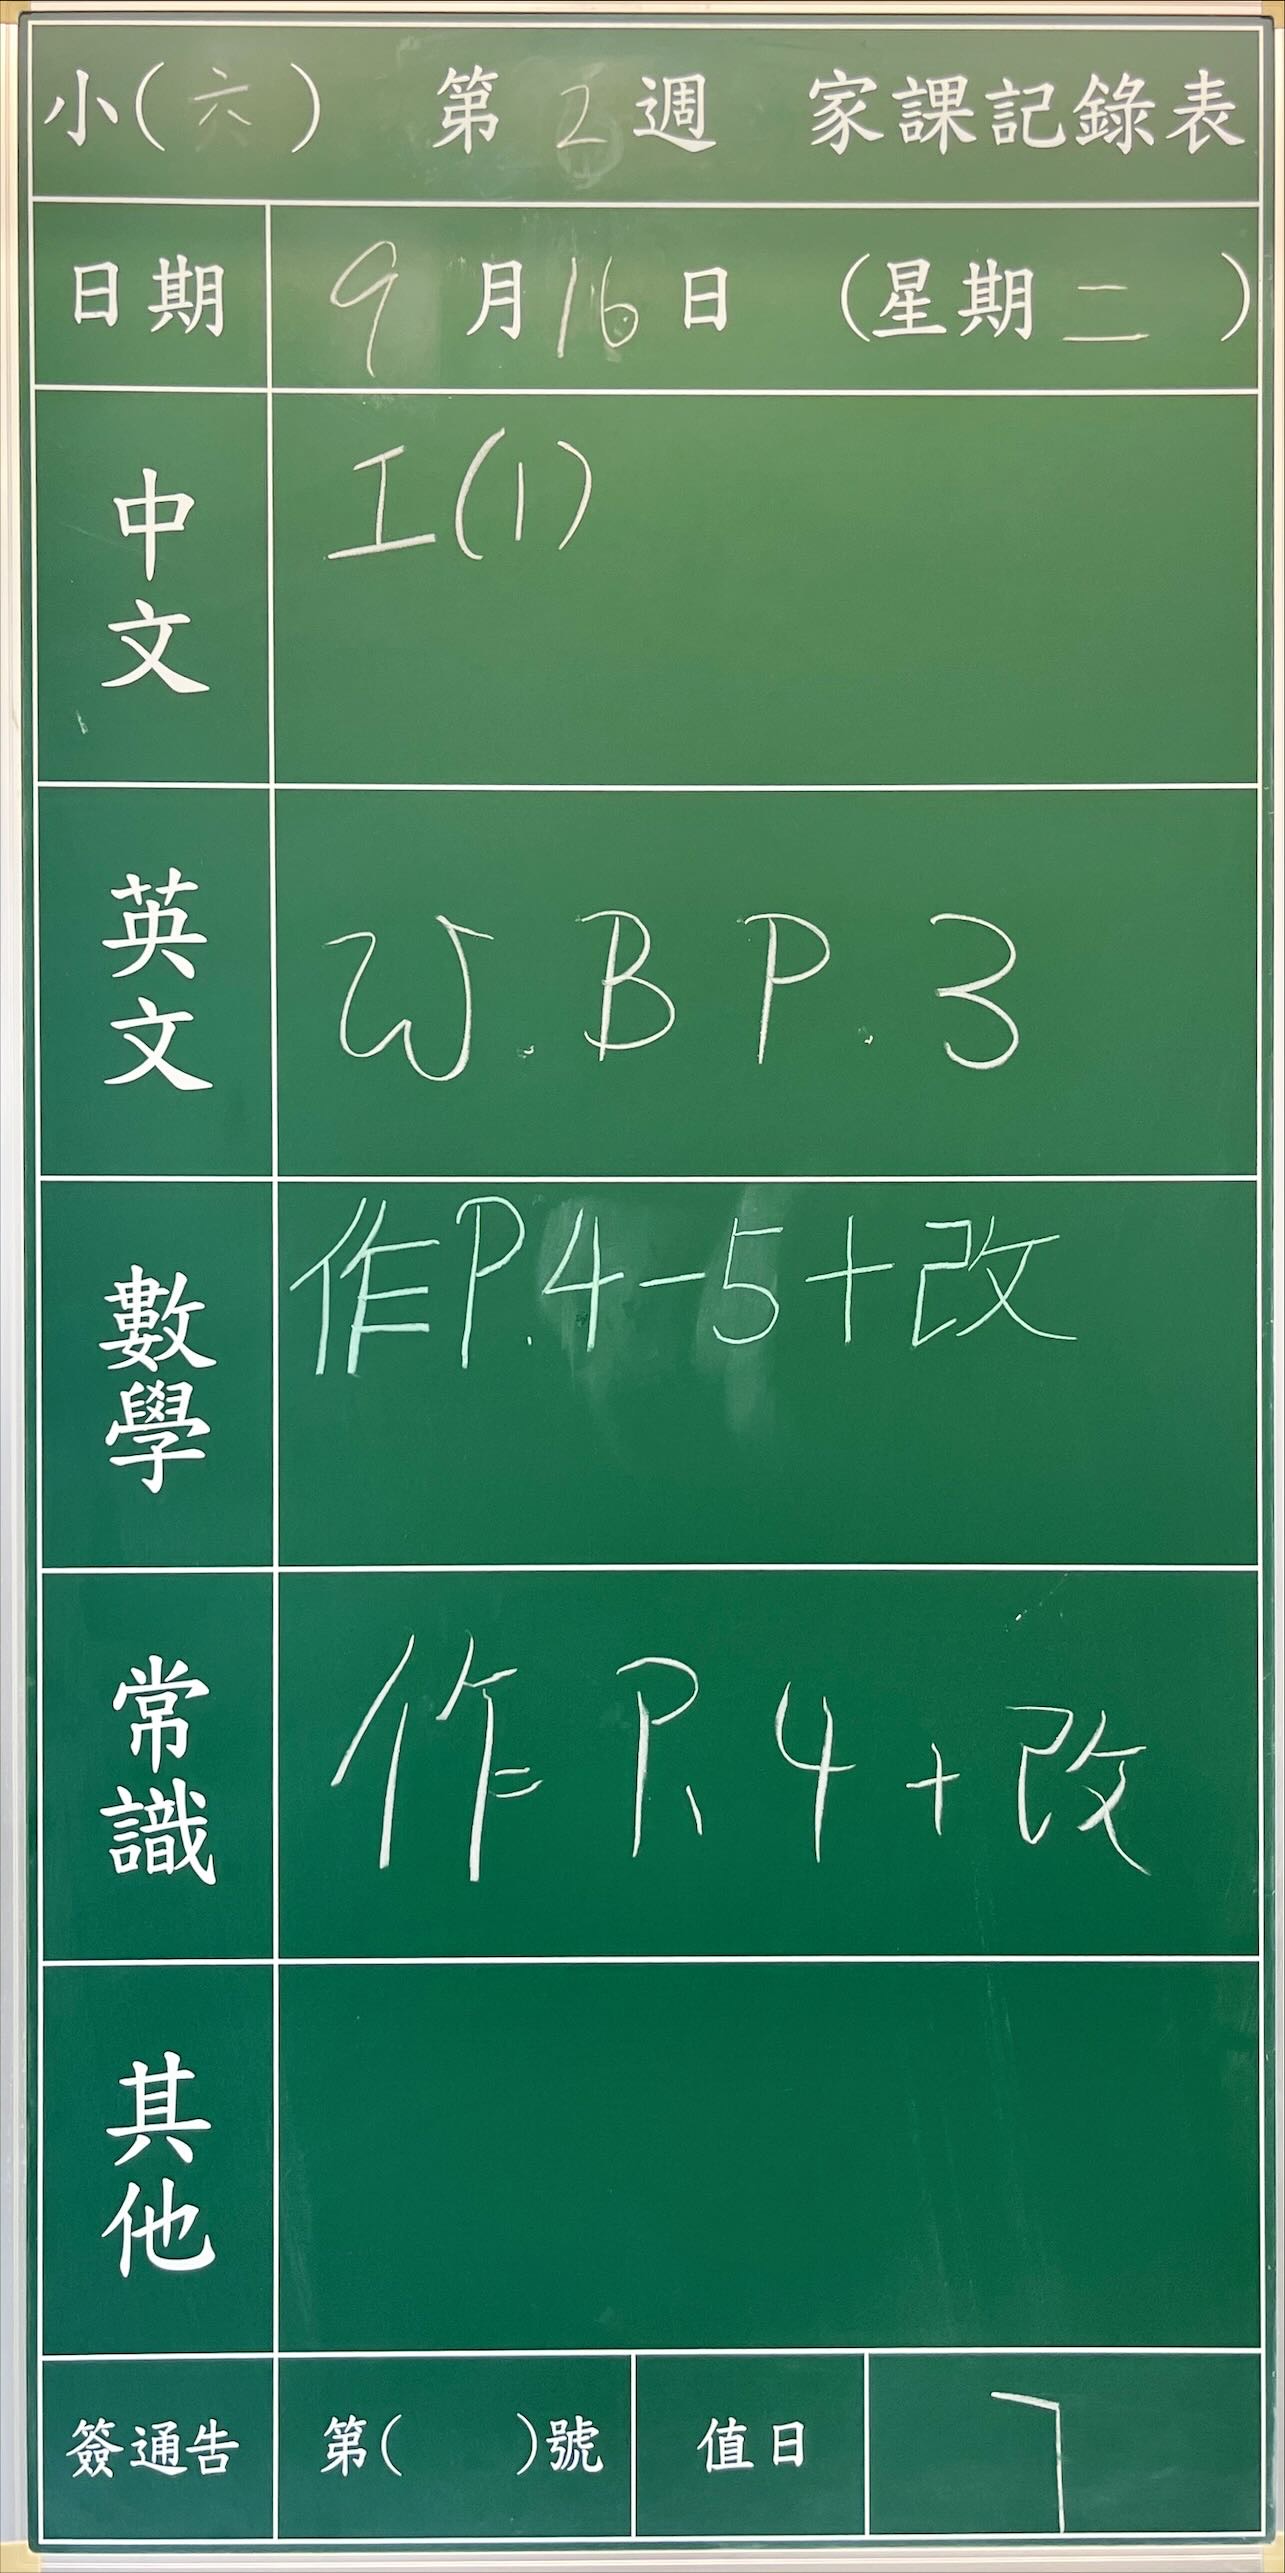 小(六) 第2週 家課記錄表
日期 9月16日 (星期二)
中文 工(1)
英文 W.B P.3
數學 作P.4-5+改
常識 作P.4+改
其他
簽通告 第( )號 值日 7